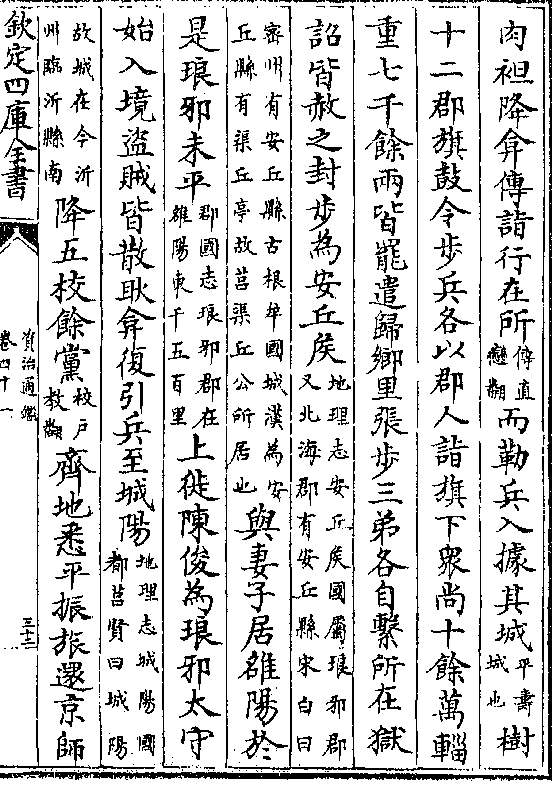 肉袒降弇傳詣行在所傳直戀翻而勒兵入據其城平壽城也樹
十二郡旗鼓令步兵各以郡人詣旗下衆尚十餘萬輜
重七千餘兩皆罷遣歸鄉里張步三弟各自繫所在獄
詔皆赦之封步為安丘侯地理志安丘侯國屬琅邪郡又北海郡有安丘縣宋白曰
密州有安丘縣古根牟國城漢為安丘縣有渠丘亭故莒渠丘公所居也與妻子居雒陽於
是琅邪未平郡國志琅邪郡在雒陽東千五百里上徙陳俊為琅邪太守
始入境盜賊皆散耿弇復引兵至城陽地理志城陽國都莒賢曰城陽
故城在今沂州臨沂縣南降五校餘黨校戶教翻齊地悉平振旅還京師
欽定四庫全書
資治通鑑
卷四十一
三十二